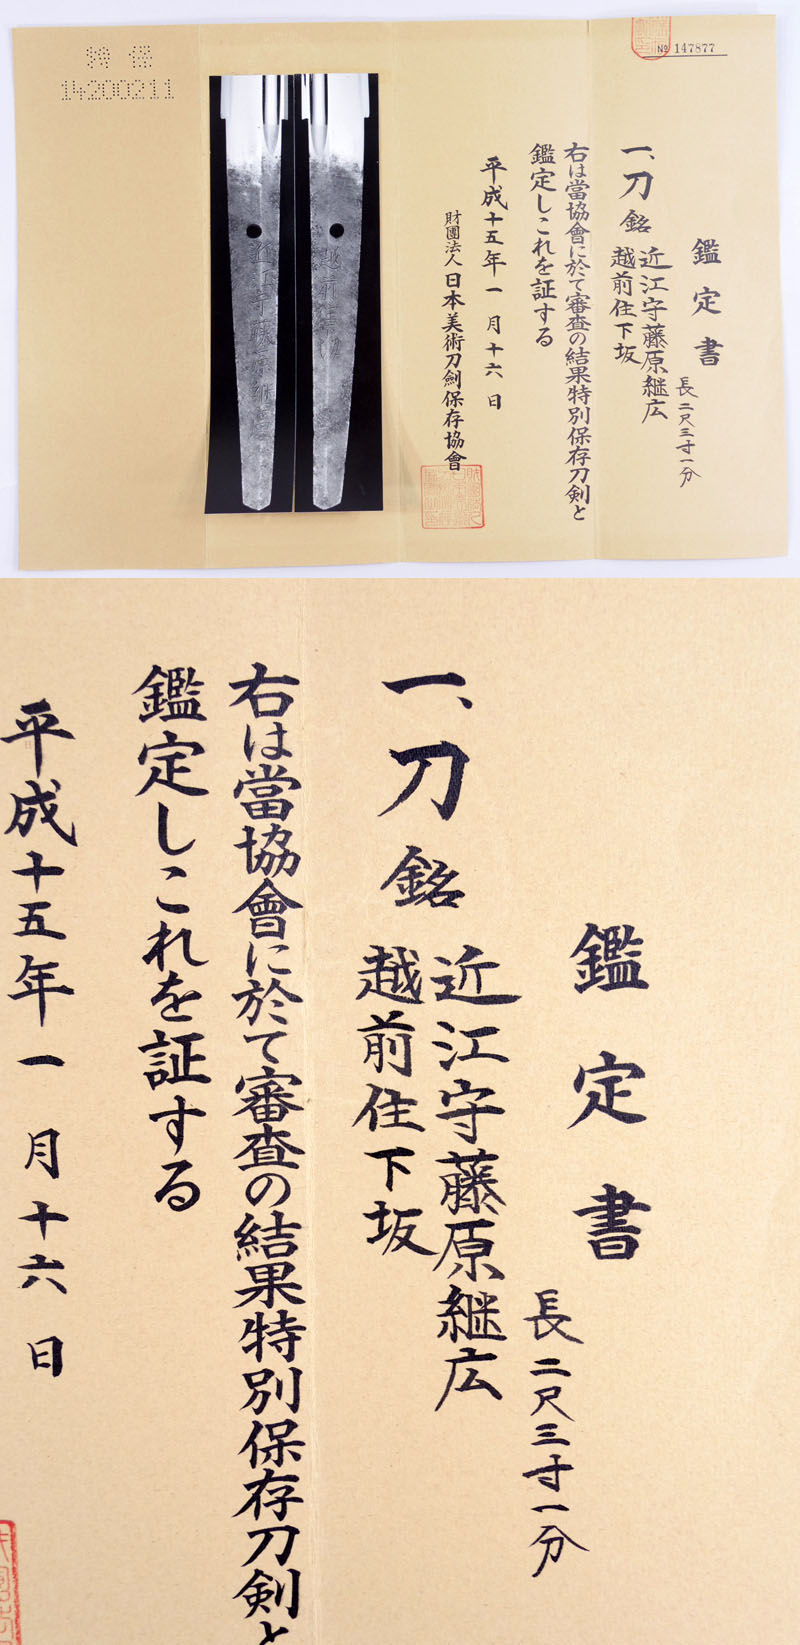 特保
14200211
No 147877
鑑定書
長二尺三寸一分
一、刀 銘 近江守藤原継広
越前住下坂
右は當協會に於て審査の結果特別保存刀剣と
鑑定しこれを証する
平成十五年一月十六日
財團法人日本美術刀劍保存協會
鑑定書
長二尺三寸一分
一、刀 銘 近江守藤原継広
越前住下坂
右は當協會に於て審査の結果特別保存刀剣と
鑑定しこれを証する
平成十五年一月十六日